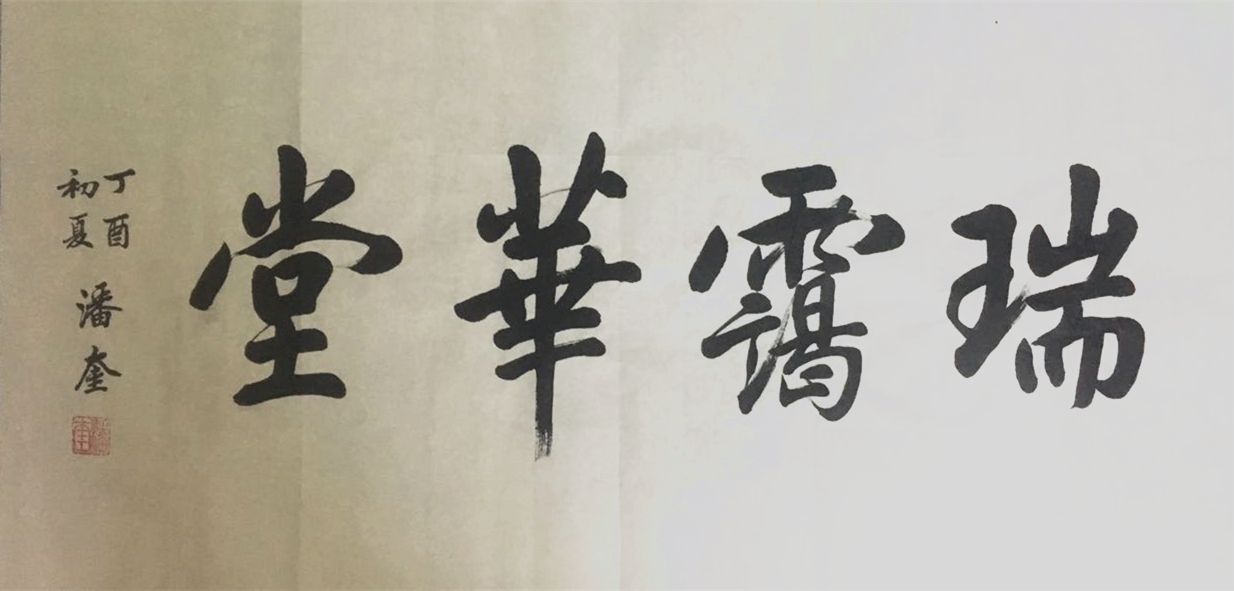 瑞靄華堂
丁酉
初夏
潘奎